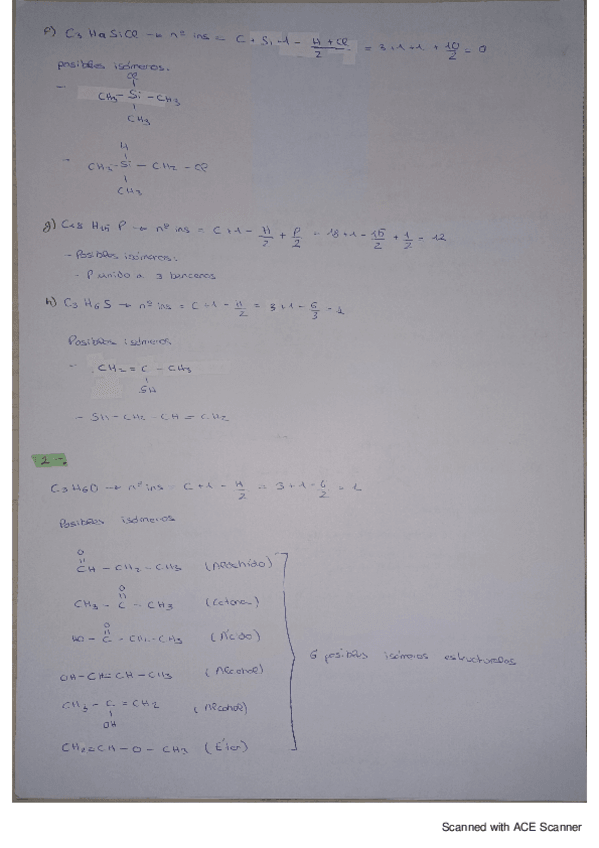 f) C3 H9 SiCl → nº ins = C + Si + 1 - (H + Cl)/2 = 3 + 1 + 1 + 10/2 = 0
posibles isómeros:
- Cl
CH3 - Si - CH3
CH3
- H
CH3 - Si - CH2 - Cl
CH3
g) C18 H15 P → nº ins = C + 1 - H/2 + P/2 = 18 + 1 - 15/2 + 1/2 = 12
- Posibles isómeros:
- P unido a 3 bencenos
h) C3 H6 S → nº ins = C + 1 - H/2 = 3 + 1 - 6/3 = 1
Posibles isómeros
- CH2 = C - CH3
SH
- SH - CH2 - CH = CH2
2-.
C3 H6O → nº ins = C + 1 - H/2 = 3 + 1 - 6/2 = 1
Posibles isómeros
O
CH - CH2 - CH3 (Aldehído)
O
CH3 - C - CH3 (Cetona)
O
HO - C - CH2 - CH3 (Ácido)
OH - CH = CH - CH3 (Alcohol)
6 posibles isómeros estructurales
CH3 - C = CH2 (Alcohol)
OH
CH2 = CH - O - CH3 (Éter)
Scanned with ACE Scanner